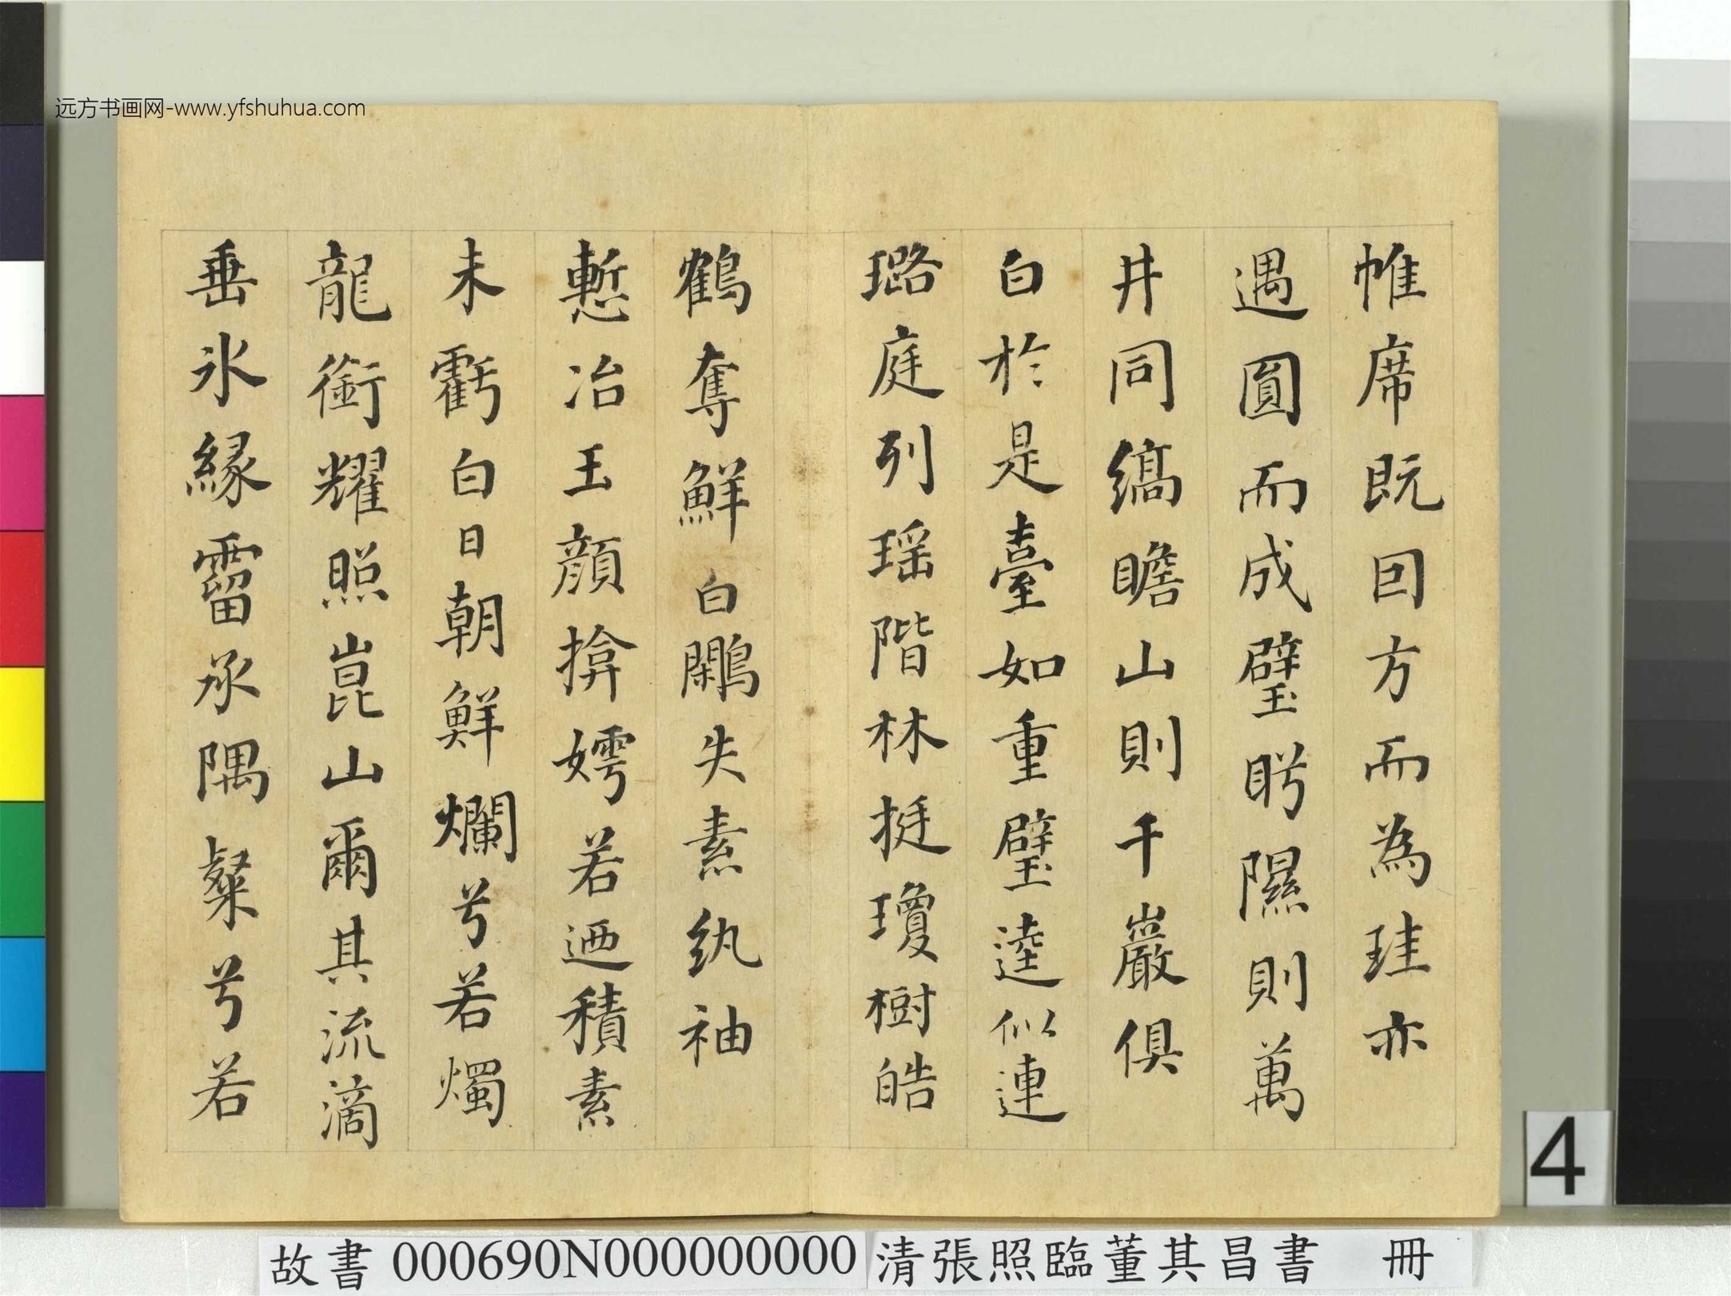 帷席既因方而為珪亦
遇圓而成璧眄隰則萬
井同縞瞻山則千巖俱
白於是臺如重璧逵似連
璐庭列瑶階林挺瓊樹皓
鶴奪鮮白鷴失素紈袖
慙冶玉顏揜嫮若迺積素
未虧白日朝鮮爛兮若燭
龍銜耀照崑山爾其流滴
垂氷緣霤承隅粲兮若
远方书画网-www.yfshuhua.com
4
故書 000690N000000000 清張照臨董其昌書 冊